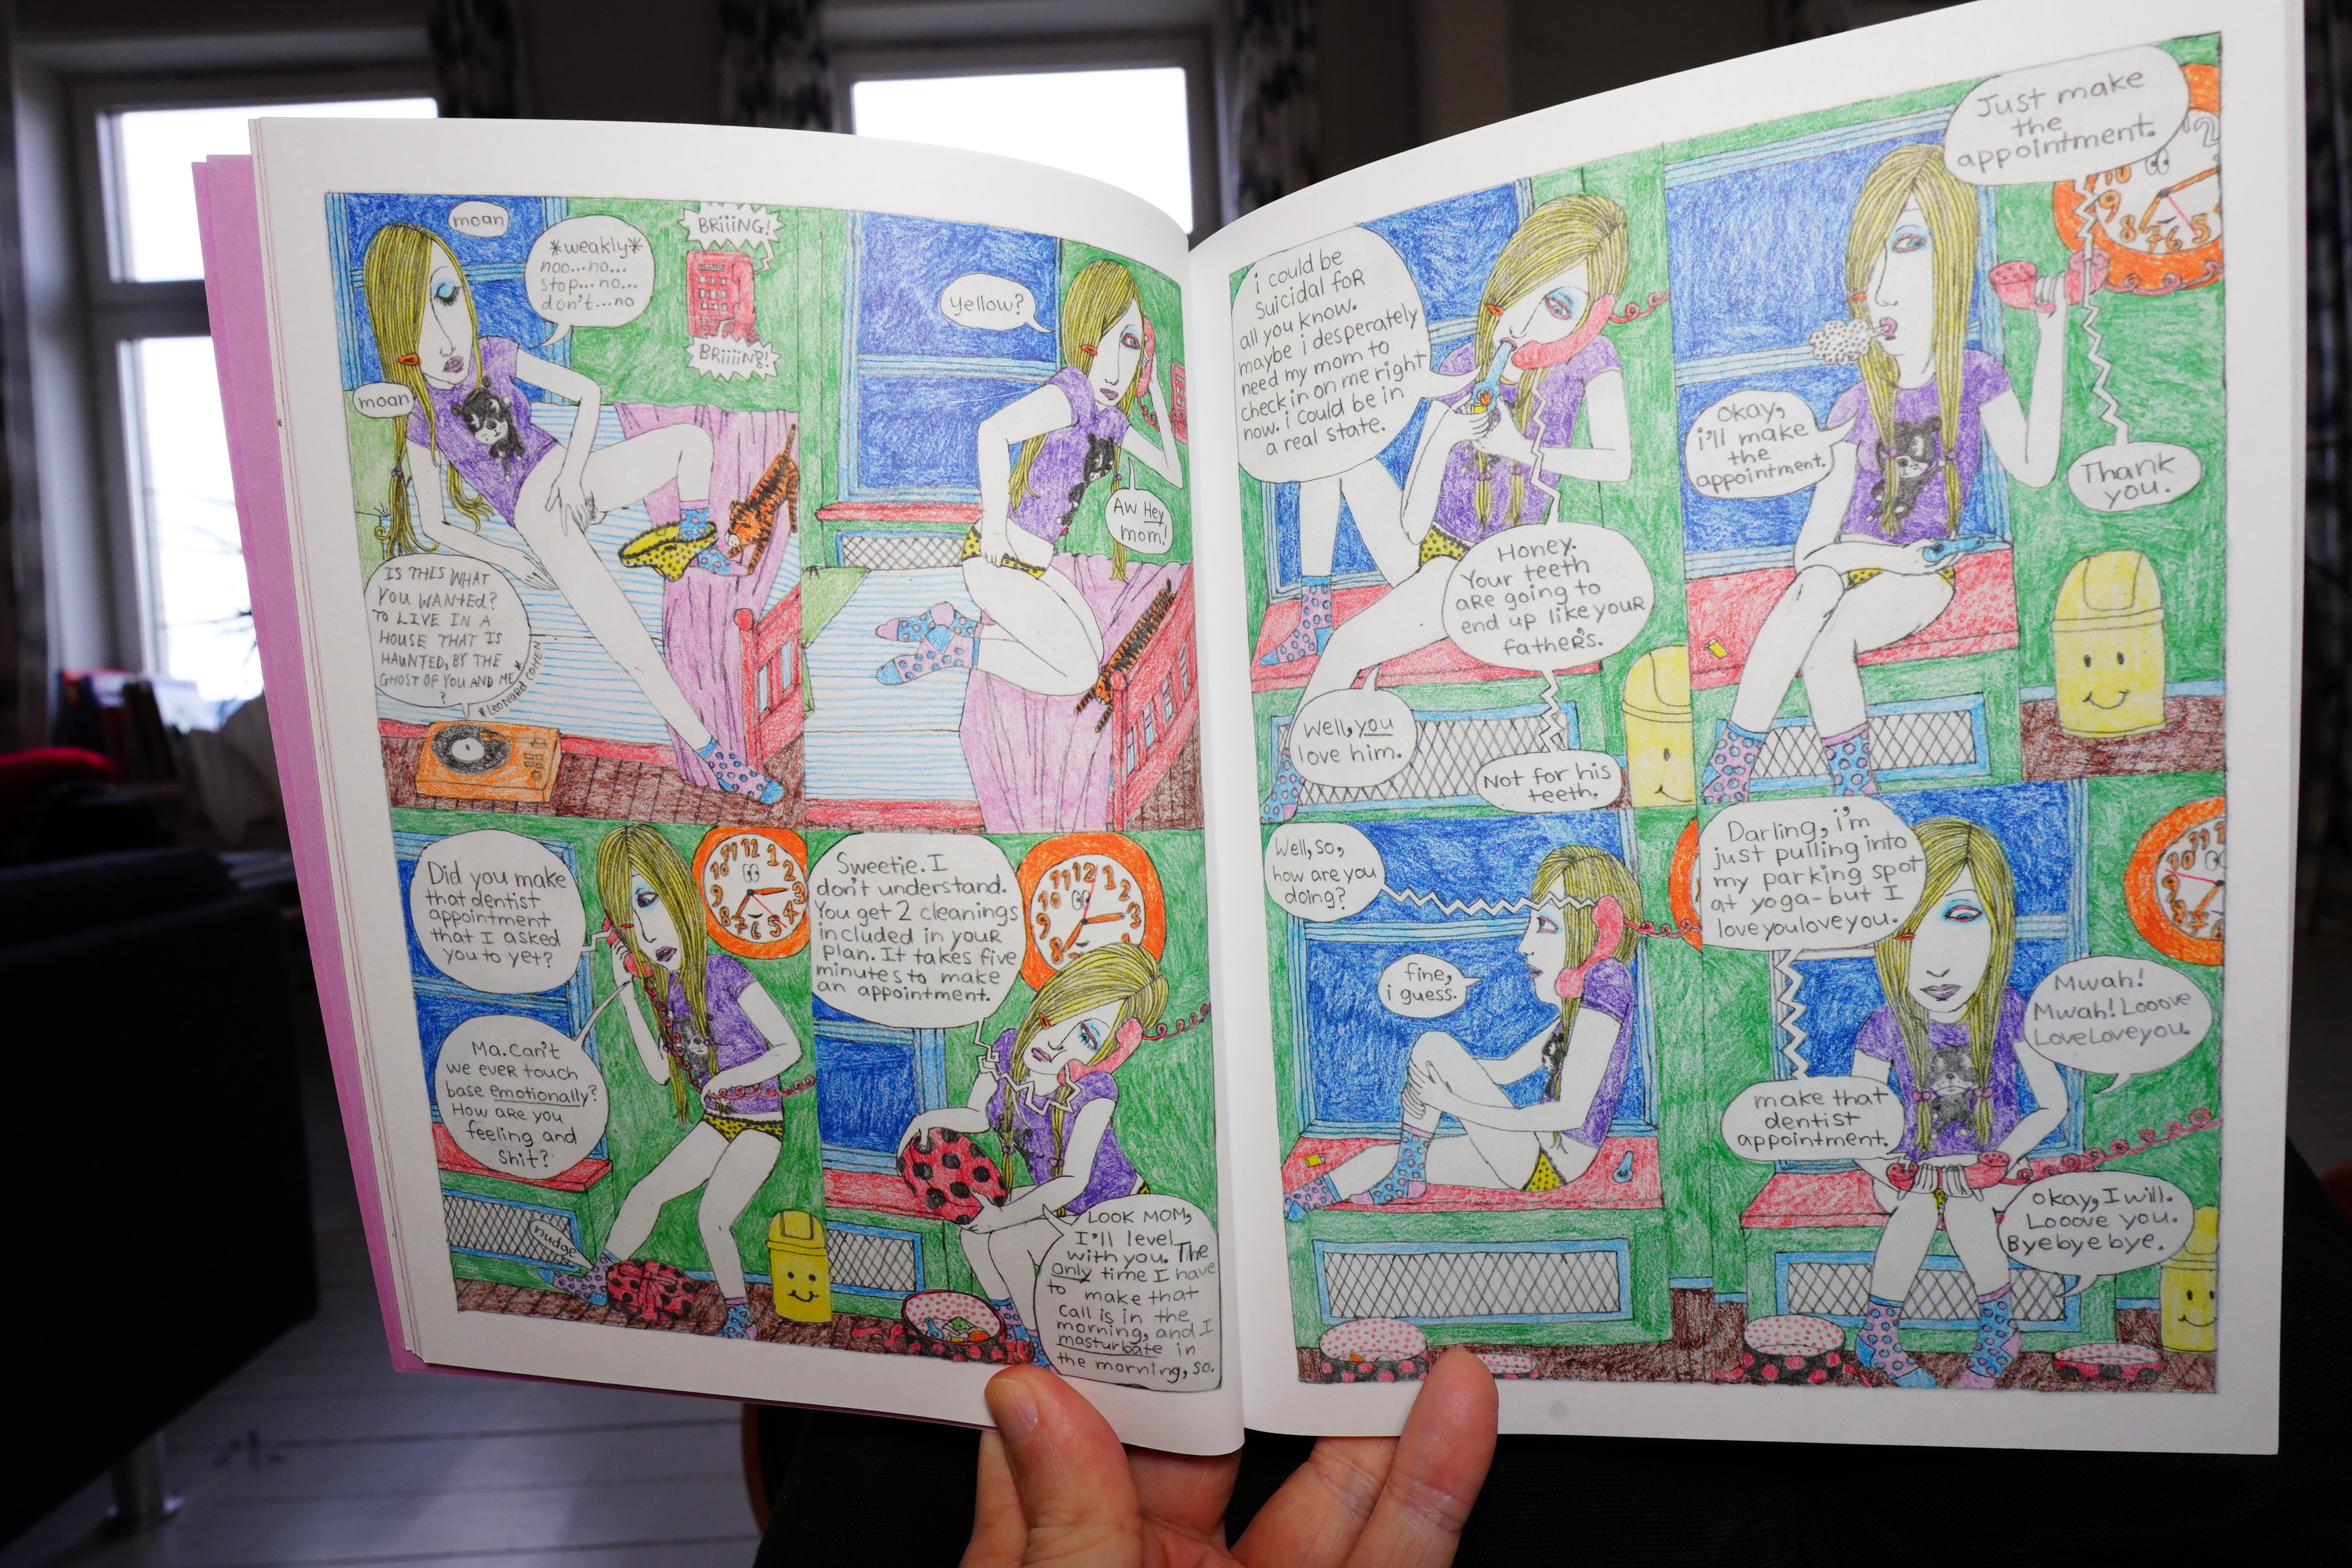 moan
*weakly*
noo...no...
stop...no...
don't...no
BRiiiNG!
BRiiiiNG!
moan
IS THIS WHAT
YOU WANTED?
TO LIVE IN A
HOUSE THAT IS
HAUNTED, BY THE
GHOST OF YOU AND ME
?
*LEONARD COHEN*
yellow?
AW Hey
mom!
Did you make
that dentist
appointment
that I asked
you to yet?
Ma. Can't
we ever touch
base emotionally?
How are you
feeling and
shit?
nudge
11 12 1
10 2
9 3
8 4
7 6 5
Sweetie. I
don't understand.
You get 2 cleanings
included in your
plan. It takes five
minutes to make
an appointment.
11 12 1
10 2
9 3
8
LOOK MOM,
I'll level
with you. The
only time I have
to make that
call is in the
morning, and I
masturbate in
the morning, so.
i could be
suicidal for
all you know.
maybe i desperately
need my mom to
check in on me right
now. i could be in
a real state.
Honey.
Your teeth
are going to
end up like your
father's.
Well, you
love him.
Not for his
teeth.
Just make
the
appointment.
2
10
9
8 7 6 5
okay,
i'll make
the
appointment.
Thank
you.
Well, so,
how are you
doing?
fine,
i guess.
Darling, i'm
just pulling into
my parking spot
at yoga-but I
love youlove you.
11 12
10
9
8
7 6
Mwah!
Mwah! Looove
LoveLoveyou.
make that
dentist
appointment.
okay, I will.
Looove you.
Byebye bye.